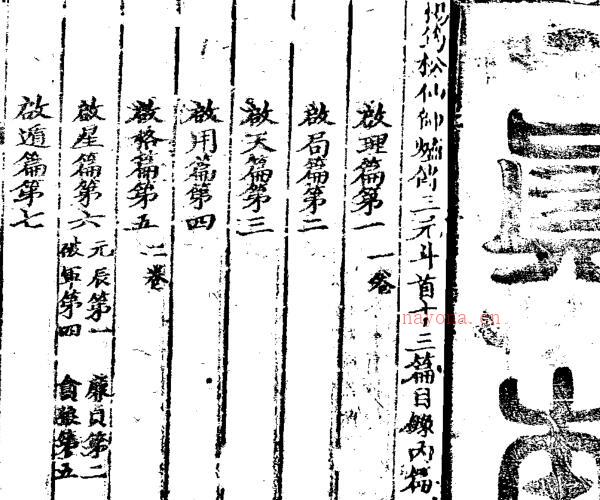 真
松仙師
三元斗首十三篇目錄內篇
啟理篇第一 一卷
啟局篇第二
啟天篇第三
啟用篇第四
啟格篇第五 二卷
啟星篇第六 元辰第一 廉貞第二
破軍第四 貪狼第五
啟遁篇第七
nayona.cn